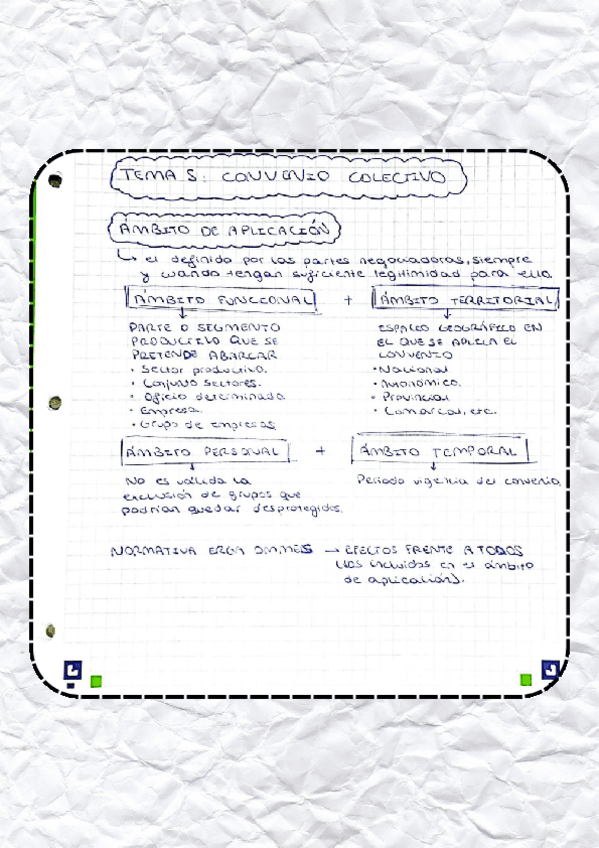 TEMA 5: CONVENIO COLECTIVO
ÁMBITO DE APLICACIÓN
↳ el definido por las partes negociadoras, siempre
y cuando tengan suficiente legitimidad para ello.
ÁMBITO FUNCIONAL + ÁMBITO TERRITORIAL
PARTE O SEGMENTO
PRODUCTIVO QUE SE
PRETENDE ABARCAR
• Sector productivo.
• Conjunto sectores.
• Oficio determinado
• Empresa.
• Grupo de empresas
ESPACIO GEOGRÁFICO EN
EL QUE SE APLICA EL
CONVENIO
• Nacional
• Autonómico.
• Provincial
• Comarcal, etc.
ÁMBITO PERSONAL + ÁMBITO TEMPORAL
No es válida la
exclusión de grupos que
podrían quedar desprotegidos.
Periodo vigencia del convenio.
NORMATIVA ERGA OMMES → EFECTOS FRENTE A TODOS
(los incluidos en el ámbito
de aplicación).